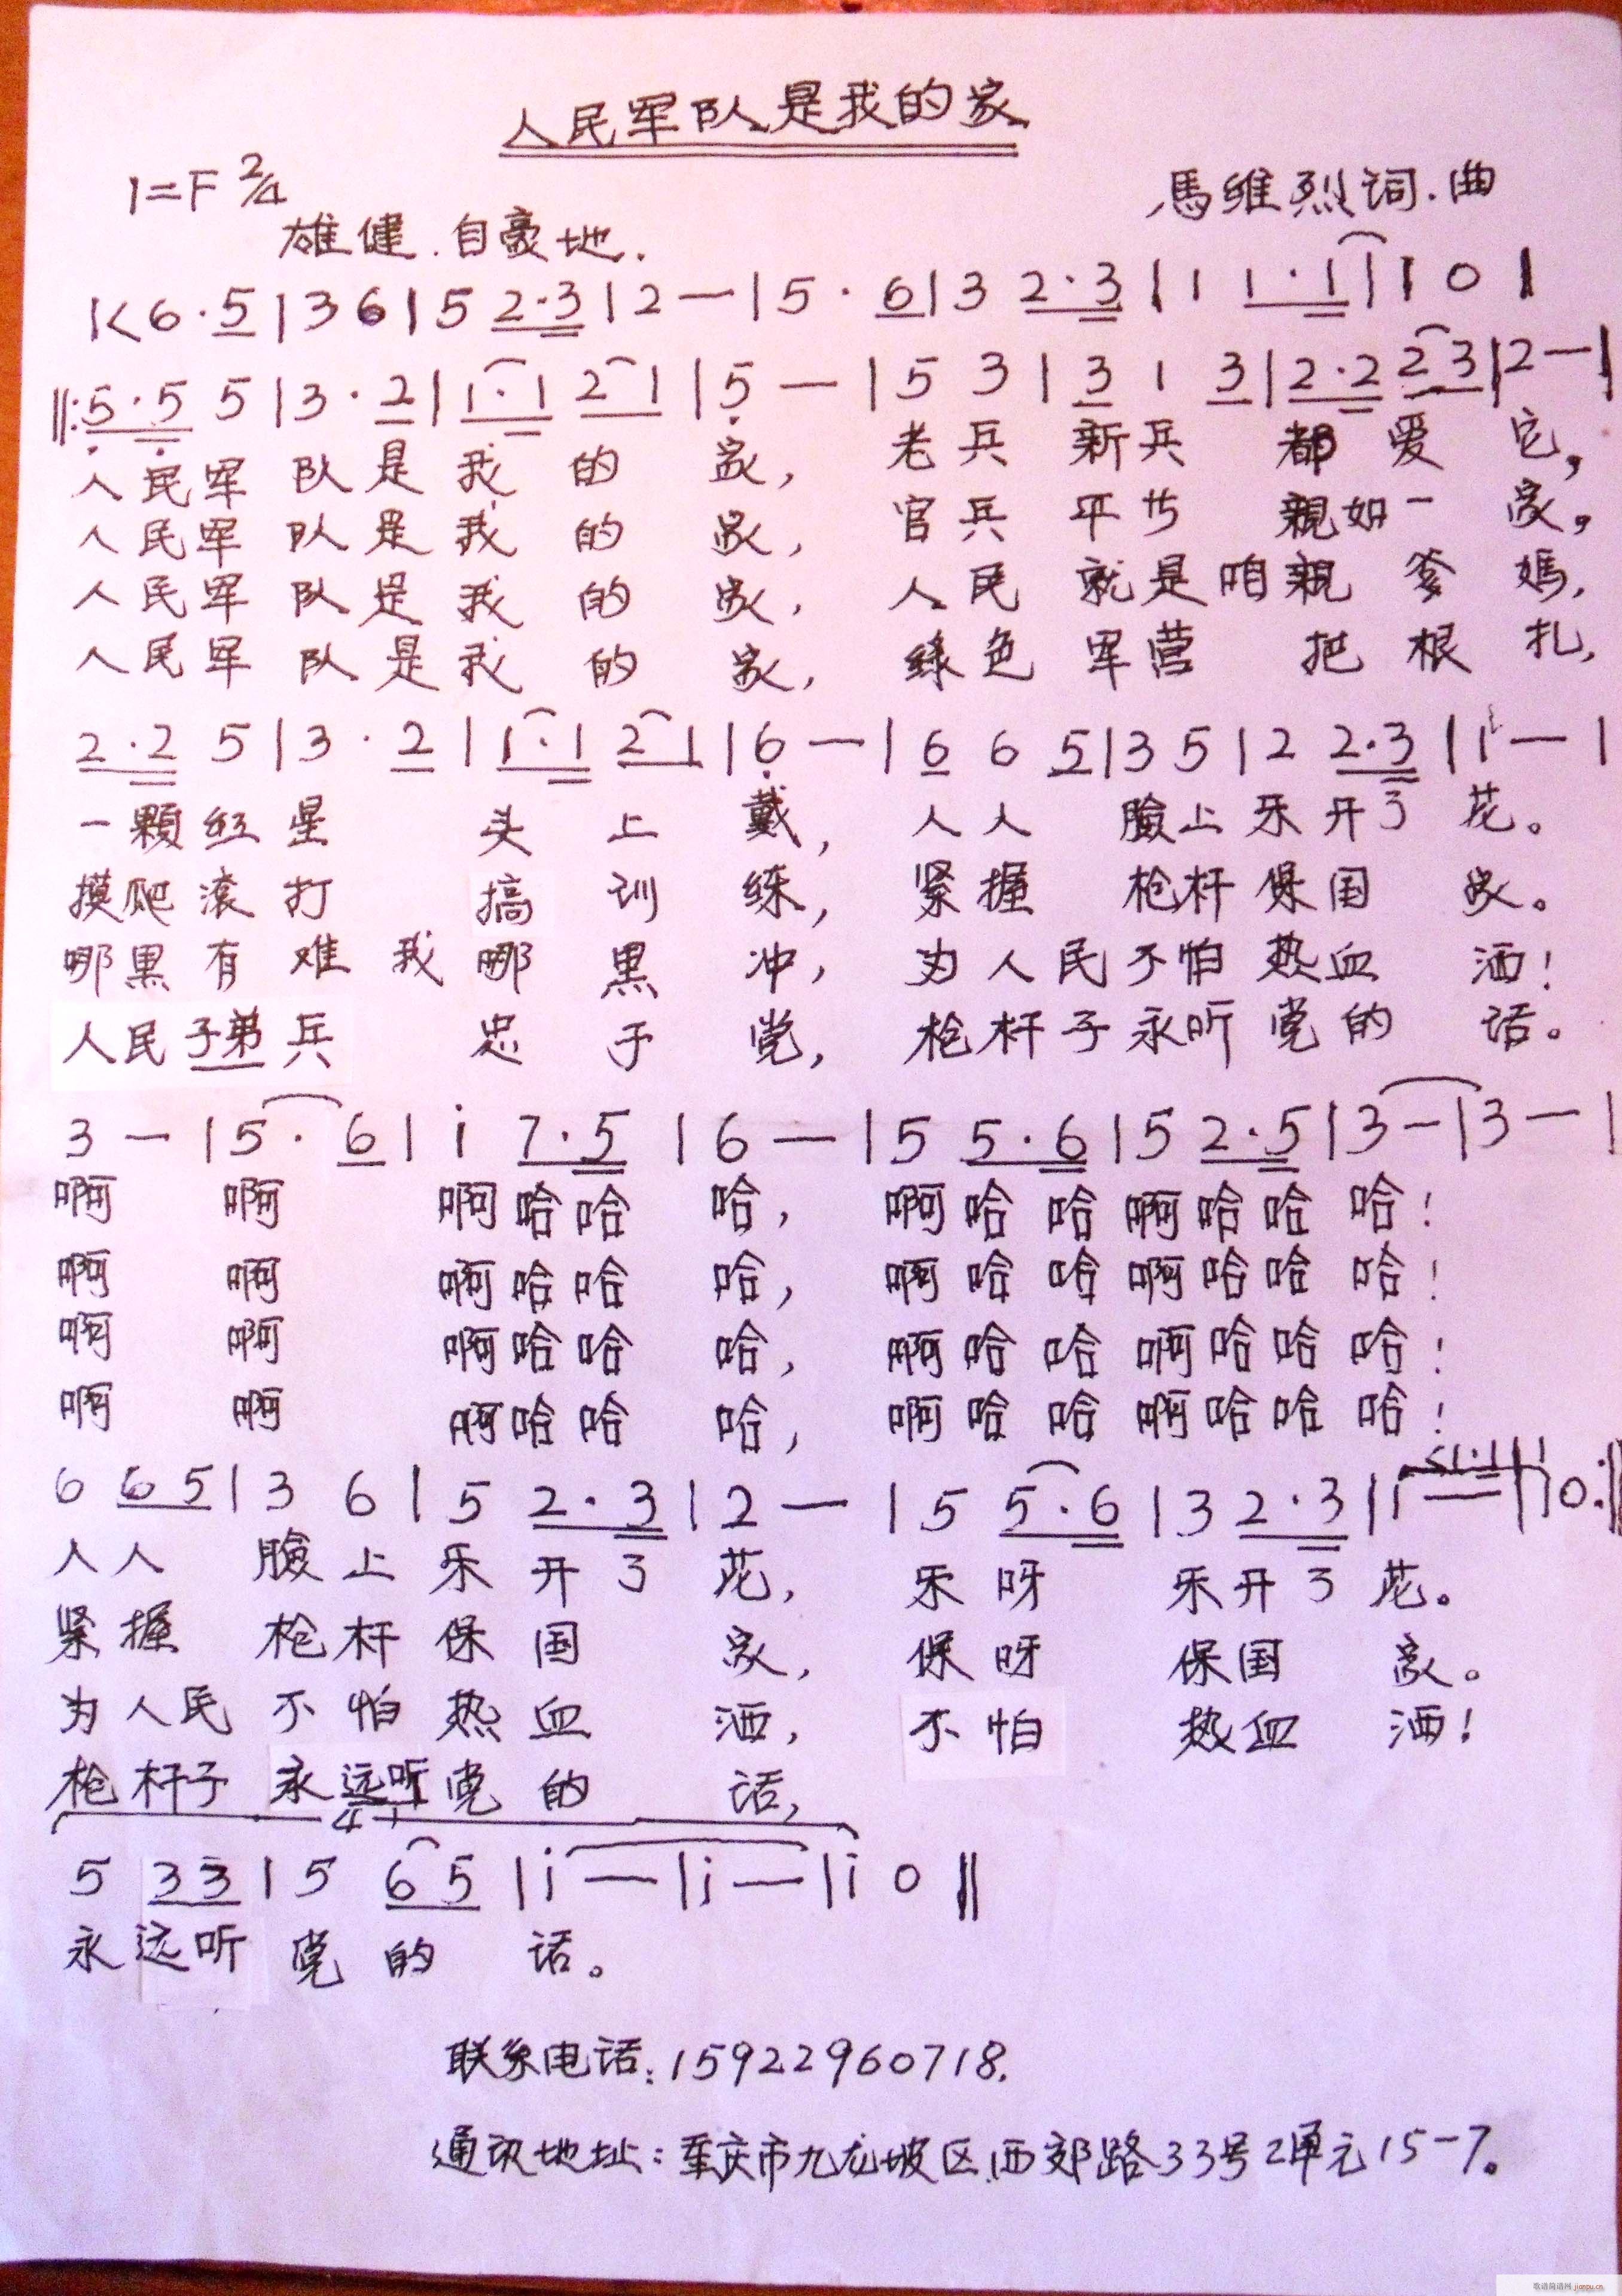 人民军队是我的家
1=F 2/4
馬维烈词.曲
雄健.自豪地.
|< 6·5 | 3 6 | 5 2·3 | 2 — | 5 · 6 | 3 2·3 | 1 1·1 | 1 0 |
‖: 5·5 5 | 3 · 2 | 1·1 2 1 | 5 — | 5 3 | 3 1 3 | 2·2 2 3 | 2 — |
人民军 队是我 的 家， 老兵 新兵 都爱 它，
人民军 队是我 的 家， 官兵 平等 親如一 家，
人民军 队是我 的 家， 人民 就是咱親爹 媽，
人民军 队是我 的 家， 绿色 军营 把根 扎，
2·2 5 | 3 · 2 | 1·1 2 1 | 6 — | 6 6 5 | 3 5 | 2 2·3 | 1 — |
一顆红星 头 上 戴， 人人 臉上乐开了 花。
摸爬滚打 搞 训 练， 紧握 枪杆保国 家。
哪里有难我哪 里 冲， 为人民不怕热血 洒！
人民子弟兵 忠 于 党， 枪杆子永听党的 话。
3 — | 5 · 6 | i 7·5 | 6 — | 5 5·6 | 5 2·5 | 3 — | 3 — |
啊 啊 啊哈哈 哈， 啊哈哈啊哈哈 哈！
啊 啊 啊哈哈 哈， 啊哈哈啊哈哈 哈！
啊 啊 啊哈哈 哈， 啊哈哈啊哈哈 哈！
啊 啊 啊哈哈 哈， 啊哈哈啊哈哈 哈！
6 6 5 | 3 6 | 5 2·3 | 2 — | 5 5·6 | 3 2·3 | 1 — | 1 0 :‖
人人 臉上乐开了 花， 乐呀 乐开了 花。
紧握 枪杆保国 家， 保呀 保国 家。
为人民不怕热血 洒， 不怕 热血 洒！
枪杆子永远听党的 话，
5 3 3 | 5 6 5 | i — | i — | i 0 ‖
永远听 党的 话。
联系电话：15922960718.
通讯地址：重庆市九龙坡区西郊路33号2单元15-7。
歌谱简谱网 jianpu.cn